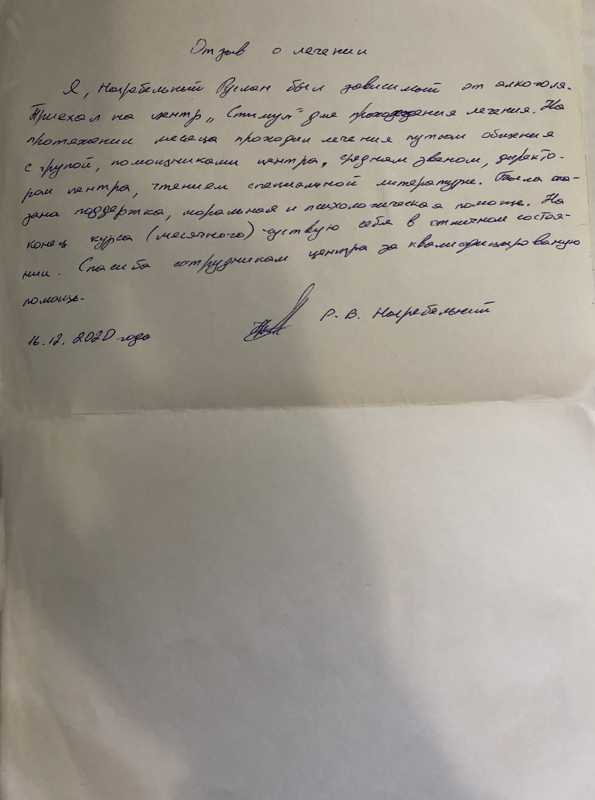 Отзыв о лечении
Я, Нагребельний Руслан был зависимый от алкоголя.
Приехал на центр „Стимул" для прохождения лечения. На
протяжении месяца проходил лечения путём общения
с групой, помощниками центра, средним званом, директо-
ром центра, чтением специальной литературы. Была ока-
зана поддержка, моральная и психологическая помощь. На
конец курса (месячного) чуствую себя в отличном состоя-
нии. Спасиба сотрудникам центра за квалифицированую
помощь.
16.12.2020 года
Р. В. Нагребельний